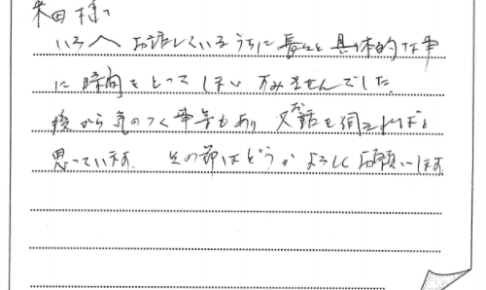 米田様
いろいろお話しているうちに長々と具体的な事
に時間をとってしまいすみませんでした。
後から気のつく事等もあり又お話を伺えればと
思っています。その節はどうかよろしくお願いします。